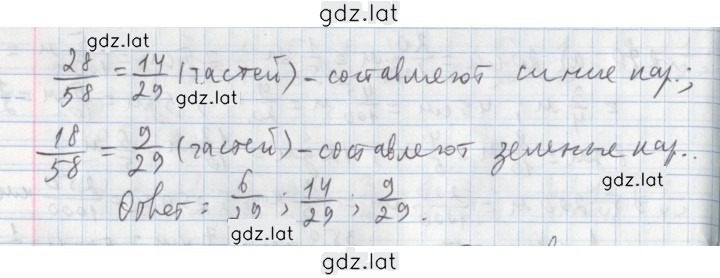 gdz.lat
gdz.lat
28/58 = 14/29 (частей) - составляют синие кар.;
gdz.lat
18/58 = 9/29 (частей) - составляют зеленые кар..
gdz.lat
Ответ: 6/29; 14/29; 9/29.
gdz.lat
gdz.lat